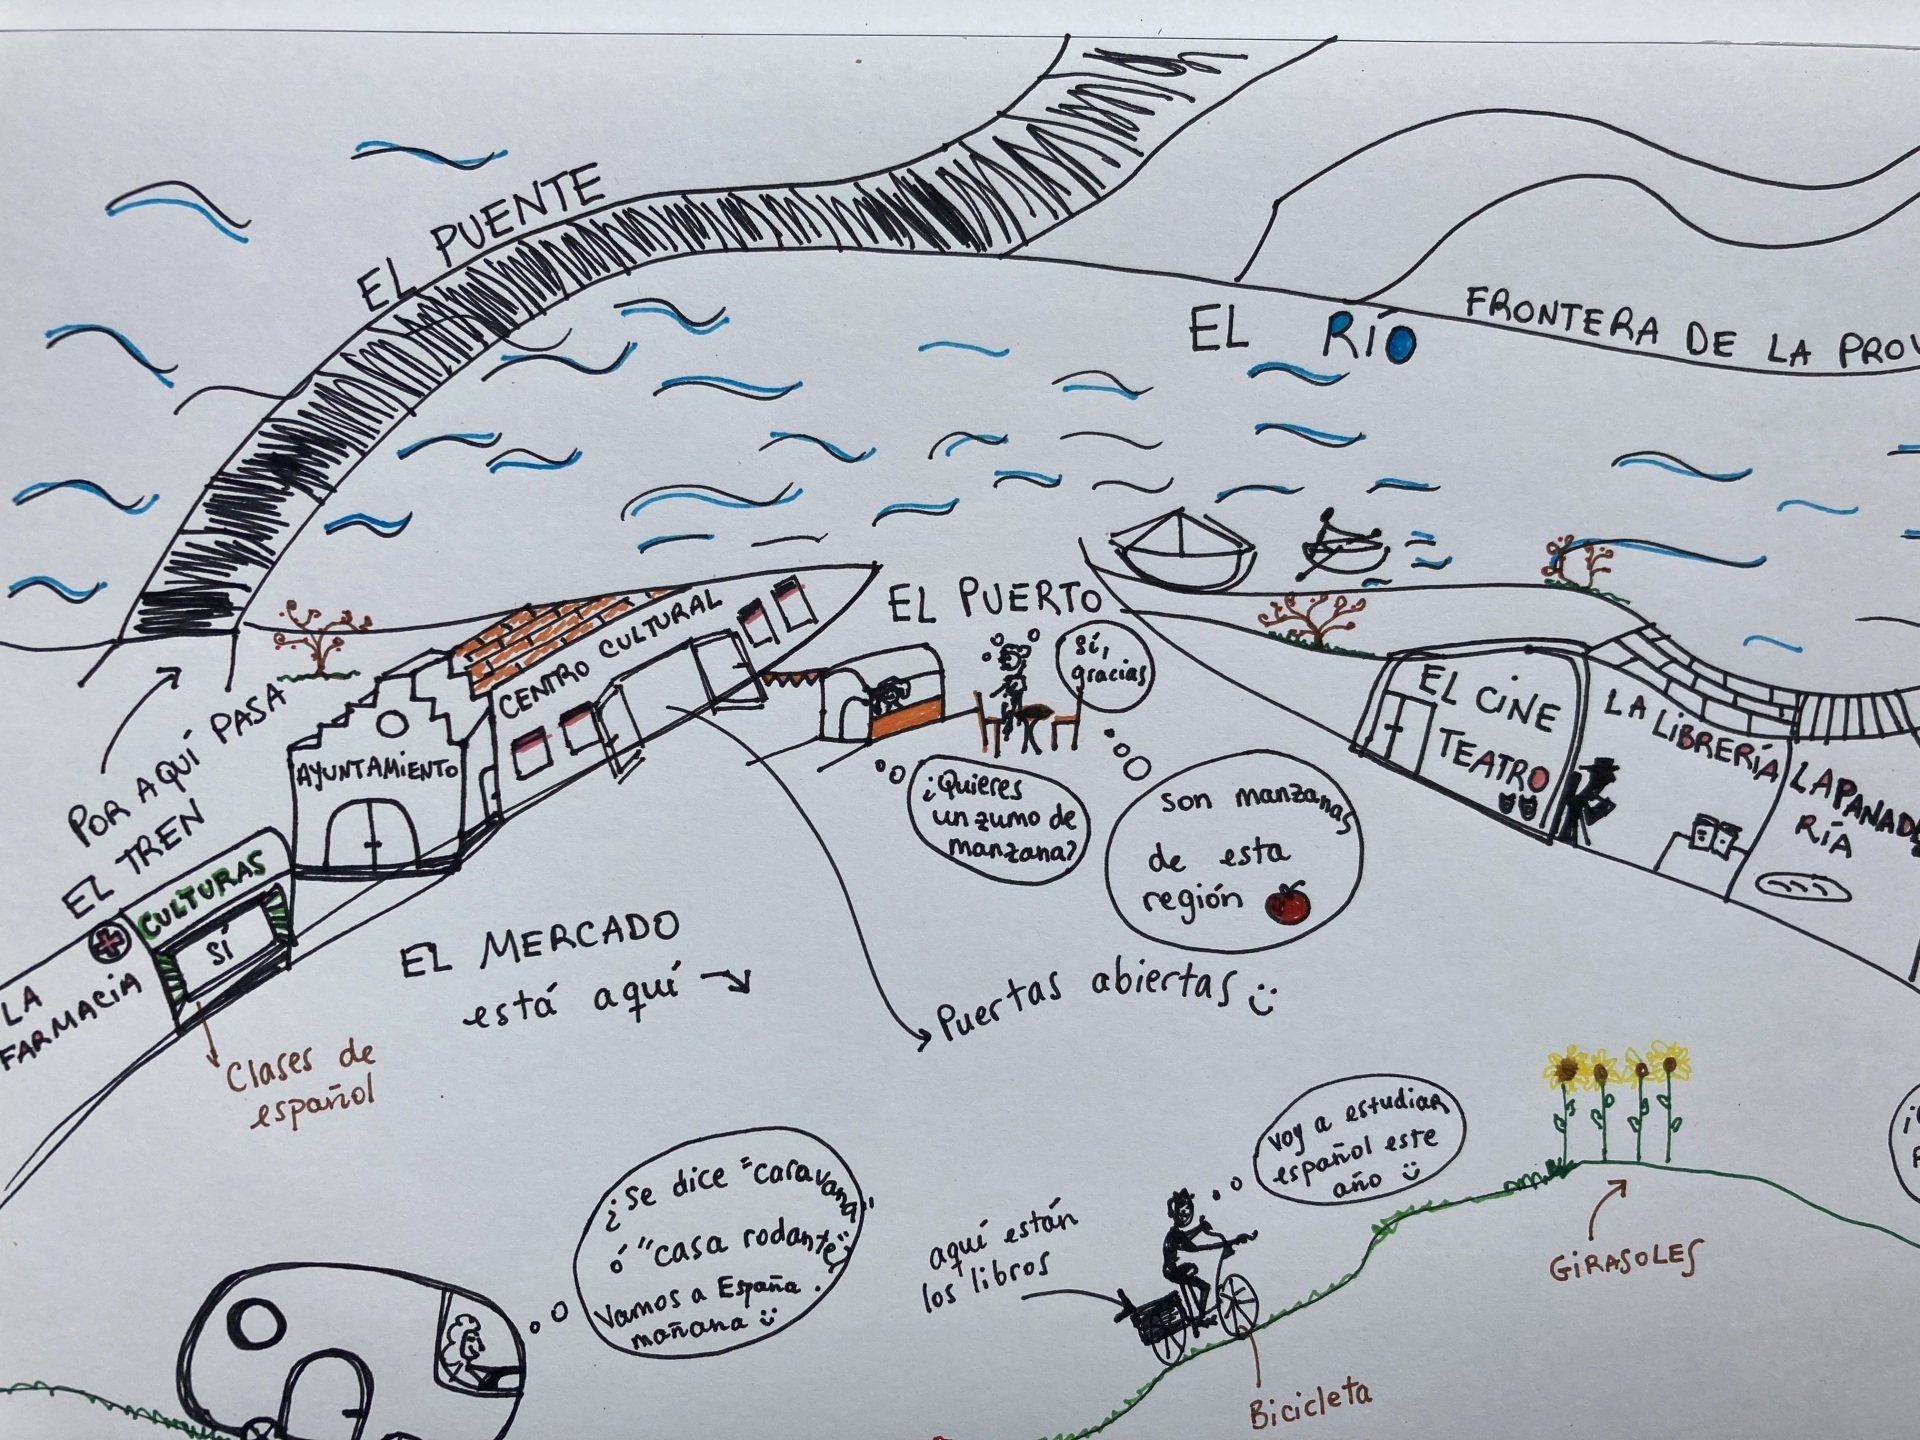 EL PUENTE
EL RÍO
FRONTERA DE LA PROV
EL PUERTO
POR AQUÍ PASA
EL TREN
AYUNTAMIENTO
CENTRO CULTURAL
Sí,
gracias
¿Quieres
un zumo de
manzana?
son manzanas
de esta
región
EL CINE
TEATRO
LA LIBRERÍA
LA PANADE
RÍA
LA
FARMACIA
CULTURAS
SÍ
Clases de
español
EL MERCADO
está aquí
Puertas abiertas
¿Se dice "caravana"
ó "casa rodante"?
Vamos a España
mañana
aquí están
los libros
voy a estudiar
español este
año
Bicicleta
GIRASOLES